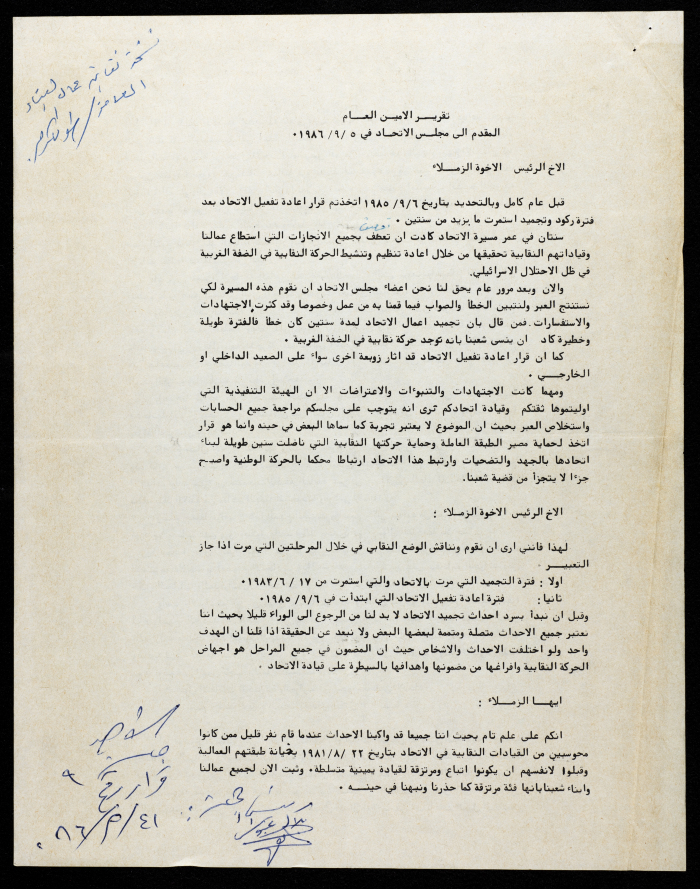 نسخة نقابة عمال
تقريـر الامين العـام
المقدم الى مجلس الاتحاد في ٥ /٩/ ١٩٨٦٠
الاخ الرئيس الاخوة الزملاء
قبل عام كامل وبالتحديد بتاريخ ١٩٨٥/٩/٦ اتخذتم قرار اعادة تفعيل الاتحاد بعد
فترة ركود وتجميد استمرت ما يزيد من سنتين ٠
سنتان في عمر مسيرة الاتحاد كادت ان تعطف بجميع الانجازات التي استطاع عمالنا
وقياداتهم النقابية تحقيقها من خلال اعادة تنظيم وتنشيط الحركة النقابية في الضفة الغربية
في ظل الاحتلال الاسرائيلي.
والان وبعد مرور عام يحق لنا نحن اعضاء مجلس الاتحاد ان نقوم هذه المسيرة لكي
نستنتج العبر ولنتبين الخطأ والصواب فيما قمنا به من عمل وخصوصا وقد كثرت الاجتهادات
والاستفسارات فمن قال بان تجميد اعمال الاتحاد لمدة سنتين كان خطأ فالفترة طويلة
وخطيرة كاد ان ينسى شعبنا بانه توجد حركة نقابية في الضفة الغربية ٠
كما ان قرار اعادة تفعيل الاتحاد قد اثار زوبعة اخرى سواء على الصعيد الداخلي او
الخارجــي ٠
ومهما كانت الاجتهادات والتنبوءات والاعتراضات الا ان الهيئة التنفيذية التي
اوليتموها ثقتكم وقيادة اتحادكم ترى انه يتوجب على مجلسكم مراجعة جميع الحسابات
واستخلاص العبر بحيث ان الموضوع لا يعتبر تجربة كما سماها البعض في حينه وانما هو قرار
اتخذ لحماية مصير الطبقة العاملة وحماية حركتها النقابية التي ناضلت سنين طويلة لبناء
اتحادها بالجهد والتضحيات وارتبط هذا الاتحاد ارتباطا محكما بالحركة الوطنية واصبـح
جزءا لا يتجزأ من قضية شعبنا.
الاخ الرئيس الاخوة الزملاء :
لهذا فانني ارى ان نقوم ونناقش الوضع النقابي في خلال المرحلتين التي مرت اذا جاز
التعبيـــر ٠
اولا : فترة التجميد التي مرت بالاتحاد والتي استمرت من ١٧ / ١٩٨٣/٦٠
ثانيا : فترة اعادة تفعيل الاتحاد التي ابتدأت في ١٩٨٥/٩/٦٠
وقبل ان نبدأ بسرد احداث تجميد الاتحاد لا بد لنا من الرجوع الى الوراء قليلا بحيث اننا
نعتبر جميع الاحداث متصلة ومتممة لبعضها البعض ولا نبعد عن الحقيقة اذا قلنا ان الهدف
واحد ولو اختلفت الاحداث والاشخاص حيث ان المضمون في جميع المراحل هو اجهاض
الحركة النقابية وافراغها من مضمونها واهدافها بالسيطرة على قيادة الاتحاد ٠
ايهـا الزمـلاء :
انكم على علم تام بحيث اننا جميعا قد واكبنا الاحداث عندما قام نفر قليل ممن كانوا
محوسبين من القيادات النقابية في الاتحاد بتاريخ ٢٢ /١٩٨١/٨ بخيانة طبقتهم العمالية
وقبلوا لانفسهم ان يكونوا اتباع ومرتزقة لقيادة يمينية متسلطة٠ وثبت الان لجميع عمالنا
وابناء شعبنابانها فئة مرتزقة كما حذرنا ونبهنا في حينـه ٠